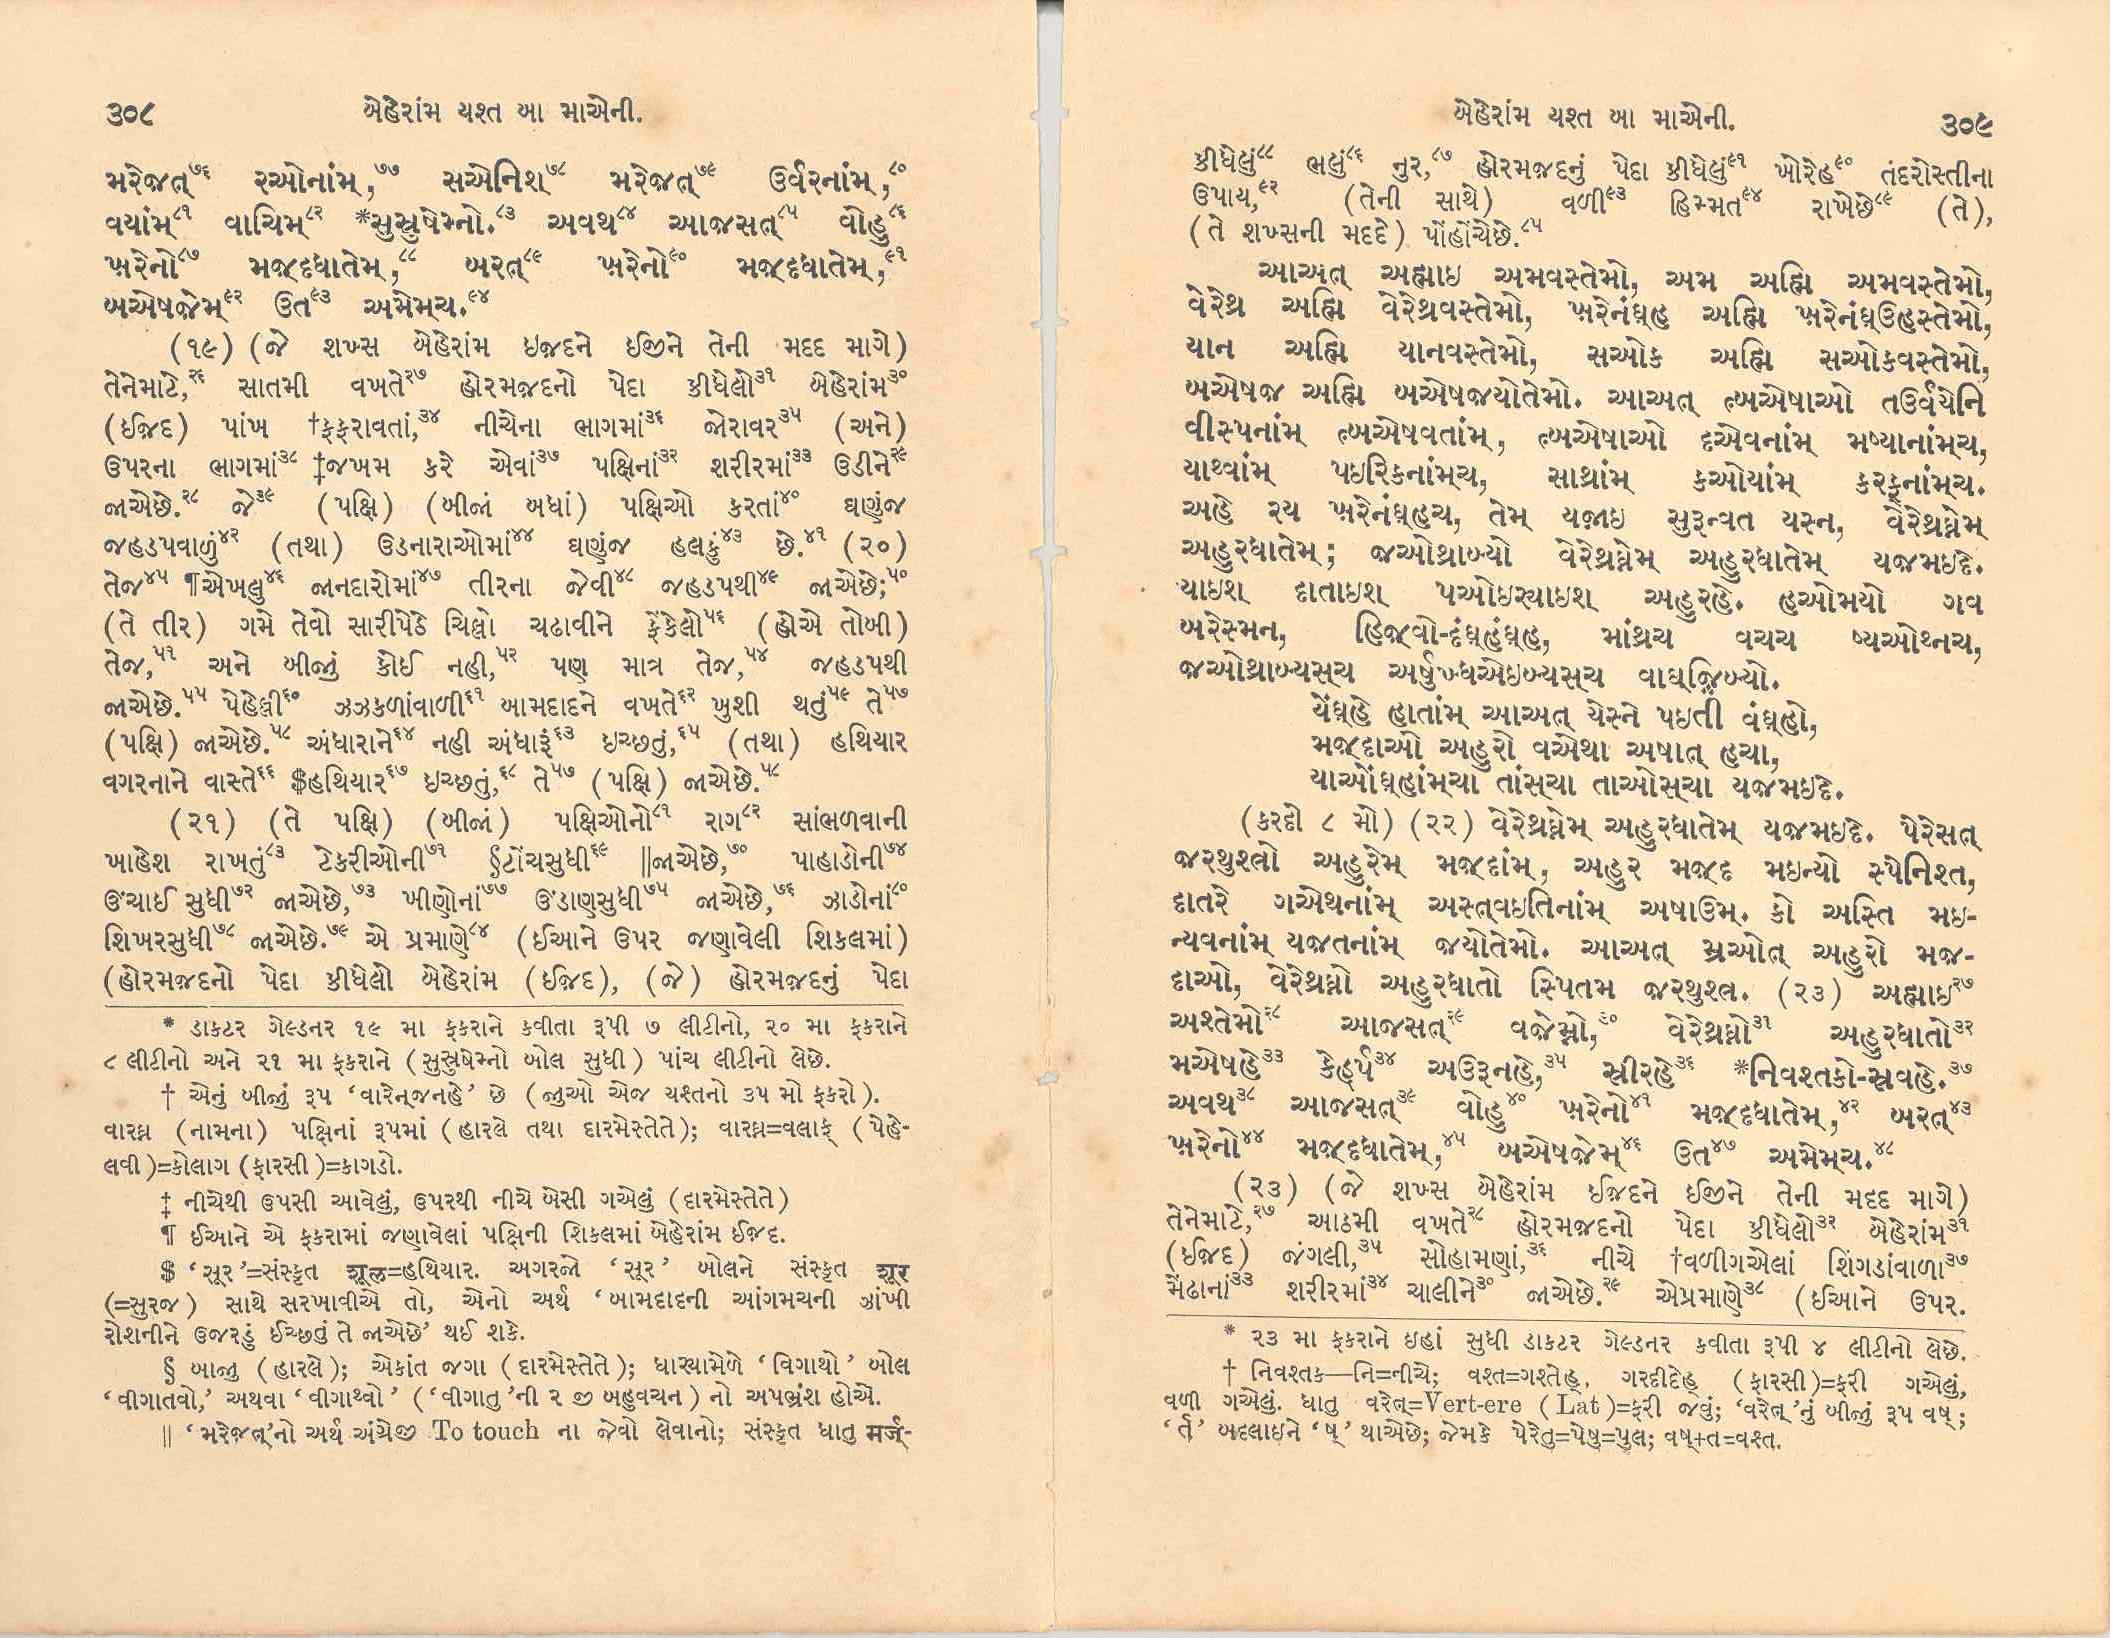 ૩૦૮ બેહેરાંમ યશ્ત બા માએની.
મરેજ઼ત્૭૬ રઓનાંમ્,૭૭ સએનિશ૭૮ મરેજ઼ત્૭૯ ઉર્વરનાંમ્,૮૦
વયાંમ્૮૧ વાચિમ્૮૨ *સુસ્રુષેમ્નો.૮૩ અવથ૮૪ આજસત્૮૫ વોહુ૮૬
ખ઼રેનો૮૭ મજ઼્દધાતેમ્,૮૮ બરત્૮૯ ખ઼રેનો૯૦ મજ઼્દધાતેમ્,૯૧
બએષજ઼ેમ્૯૨ ઉત૯૩ અમેમ્ચ.૯૪
(૧૯) (જે શખ્સ બેહેરાંમ ઇજ઼દને ઈજીને તેની મદદ માગે)
તેનેમાટે,૨૬ સાતમી વખતે૨૭ હોરમજ઼દનો પેદા કીધેલો૩૧ બેહેરાંમ૩૦
(ઈજ઼દ) પાંખ †ફફરાવતાં,૩૪ નીચેના ભાગમાં૩૬ જોરાવર૩૫ (અને)
ઉપરના ભાગમાં૩૮ ‡જખમ કરે એવાં૩૭ પક્ષિનાં૩૨ શરીરમાં૩૩ ઉડીને૨૯
જાએછે.૨૮ જે૩૯ (પક્ષિ) (બીજાં બધાં) પક્ષિઓ કરતાં૪૦ ઘણુંજ
જહડપવાળું૪૨ (તથા) ઉડનારાઓમાં૪૪ ઘણુંજ હલકું૪૩ છે.૪૧ (૨૦)
તેજ૪૫ ¶એખલુ૪૬ જાનદારોમાં૪૭ તીરના જેવી૪૮ જહડપથી૪૯ જાએછે;૫૦
(તે તીર) ગમે તેવો સારીપેઠે ચિલ્લો ચઢાવીને ફેંકેલો૫૬ (હોએ તોબી)
તેજ,૫૧ અને બીજું કોઈ નહી,૫૨ પણ માત્ર તેજ,૫૪ જહડપથી
જાએછે.૫૫ પેહેલ્લી૬૦ ઝઝકળાંવાળી૬૧ બામદાદને વખતે૬૨ ખુશી થતું૫૯ તે૫૭
(પક્ષિ) જાએછે.૫૮ અંધારાને૬૪ નહી અંધારૂં૬૩ ઇચ્છતું,૬૫ (તથા) હથિયાર
વગરનાને વાસ્તે૬૬ $હથિયાર૬૭ ઇચ્છતું,૬૮ તે૫૭ (પક્ષિ) જાએછે.૫૮
(૨૧) (તે પક્ષિ) (બીજાં) પક્ષિઓનો૮૧ રાગ૮૨ સાંભળવાની
ખાહેશ રાખતું૮૩ ટેકરીઓની૭૧ §ટોંચસુધી૬૯ ‖જાએછે,૭૦ પાહાડોની૭૪
ઊંચાઈ સુધી૭૨ જાએછે,૭૩ ખીણોનાં૭૭ ઊંડાણસુધી૭૫ જાએછે,૭૬ ઝાડોનાં૮૦
શિખરસુધી૭૮ જાએછે.૭૯ એ પ્રમાણે૮૪ (ઈઆને ઉપર જણાવેલી શિકલમાં)
(હોરમજ઼દનો પેદા કીધેલો બેહેરાંમ (ઈજ઼દ), (જે) હોરમજ઼દનું પેદા
* ડાકટર ગેલ્ડનર ૧૯ મા ફકરાને કવીતા રૂપી ૭ લીટીનો, ૨૦ મા ફકરાને
૮ લીટીનો અને ૨૧ મા ફકરાને (સુસ્રુષેમ્નો બોલ સુધી) પાંચ લીટીનો લેછે.
† એનું બીજું રૂપ ‘વારેન્જનહે’ છે (જુઓ એજ યશ્તનો ૩૫ મો ફકરો).
વારઘ્ન (નામના) પક્ષિનાં રૂપમાં (હારલે તથા દારમેસ્તેતે); વારઘ્ન=વલાક્ (પેહે-
લવી)=કોલાગ (ફારસી)=કાગડો.
‡ નીચેથી ઉપસી આવેલું, ઉપરથી નીચે બેસી ગએલું (દારમેસ્તેતે)
¶ ઈઆને એ ફકરામાં જણાવેલાં પક્ષિની શિકલમાં બેહેરાંમ ઈજ઼દ.
$ ‘સૂર’=સંસ્કૃત शूल=હથિયાર. અગરજો ‘સૂર’ બોલને સંસ્કૃત शूर
(=સુરજ) સાથે સરખાવીએ તો, એનો અર્થ ‘બામદાદની આંગમચની ઝાંખી
રોશનીને ઉજરડું ઈચ્છતું તે જાએછે’ થઈ શકે.
§ બાજુ (હારલે); એકાંત જગા (દારમેસ્તેતે); ધાર્યામેળે ‘વિગાથો’ બોલ
‘વીગાતવો,’ અથવા ‘વીગાથ્વો’ (‘વીગાતુ’ની ૨ જી બહુવચન) નો અપભ્રંશ હોએ.
‖ ‘મરેજ઼ત્’નો અર્થ અંગ્રેજી To touch ના જેવો લેવાનો; સંસ્કૃત ધાતુ मर्ज्-
બેહેરાંમ યશ્ત બા માએની. ૩૦૯
કીધેલું૮૮ ભલું૮૬ નુર,૮૭ હોરમજ઼દનું પેદા કીધેલું૯૧ ખોરેહ૯૦ તંદરોસ્તીના
ઉપાય,૯૨ (તેની સાથે) વળી૯૩ હિમ્મત૯૪ રાખેછે૮૯ (તે),
(તે શખ્સની મદદે) પોંહોંચેછે.૮૫
આઅત્ અહ્માઇ અમવસ્તેમો, અમ અહ્મિ અમવસ્તેમો,
વેરેથ્ર અહ્મિ વેરેથ્રવસ્તેમો, ખ઼રેનંઘ્હ અહ્મિ ખ઼રેનંઘ્ઉહસ્તેમો,
યાન અહ્મિ યાનવસ્તેમો, સઓક અહ્મિ સઓકવસ્તેમો,
બએષજ઼ અહ્મિ બએષજ઼યોતેમો. આઅત્ ત્બએષાઓ તઉર્વયેનિ
વીસ્પનાંમ્ ત્બએષવતાંમ્, ત્બએષાઓ દએવનાંમ્ મષ્યાનાંમ્ચ,
યાથ્વાંમ્ પઇરિકનાંમ્ચ, સાથ્રાંમ્ કઓયાંમ્ કરફ્નાંમ્ચ.
અહે રય ખ઼રેનંઘ્હચ, તેમ્ યજ઼ાઇ સુરૂન્વત યસ્ન, વેરેથ્રઘ્નેમ્
અહુરધાતેમ્; જ઼ઓથ્રાબ્યો વેરેથ્રઘ્નેમ્ અહુરધાતેમ્ યજ઼મઇદે.
યાઇશ્ દાતાઇશ્ પઓઇર્યાઇશ્ અહુરહે. હઓમયો ગવ
બરેસ્મન, હિજ઼્વો-દંઘ્હંઘ્હ, માંથ્રચ વચચ ષ્યઓથ્નચ,
જ઼ઓથ્રાબ્યસ્ચ અર્ષુખ્ધએઇબ્યસ્ચ વાઘ્જ઼િબ્યો.
યેંઘ્હે હાતાંમ્ આઅત્ યેસ્ને પઇતી વંઘ્હો,
મજ઼્દાઓ અહુરો વએથા અષાત્ હચા,
યાઓંઘ્હાંમ્ચા તાંસ્ચા તાઓસ્ચા યજ઼મઇદે.
(કરદો ૮ મો) (૨૨) વેરેથ્રઘ્નેમ્ અહુરધાતેમ્ યજ઼મઇદે. પેરેસત્
જ઼રથુશ્ત્રો અહુરેમ્ મજ઼્દાંમ્, અહુર મજ઼્દ મઇન્યો સ્પેનિશ્ત,
દાતરે ગએથનાંમ્ અસ્ત્વઇતિનાંમ્ અષાઉમ્. કો અસ્તિ મઇ-
ન્યવનાંમ્ યજ઼તનાંમ્ જ઼યોતેમો. આઅત્ મ્રઓત્ અહુરો મજ઼-
દાઓ, વેરેથ્રઘ્નો અહુરધાતો સ્પિતમ જ઼રથુશ્ત્ર. (૨૩) અહ્માઇ૨૭
અશ્તેમો૨૮ આજસત્૨૯ વજ઼ેમ્નો,૩૦ વેરેથ્રઘ્નો૩૧ અહુરધાતો૩૨
મએષહે૩૩ કેહ્ર્પ૩૪ અઉરૂનહે,૩૫ સ્રીરહે૩૬ *નિવશ્તકો-સ્રવહે.૩૭
અવથ૩૮ આજસત્૩૯ વોહુ૪૦ ખ઼રેનો૪૧ મજ઼્દધાતેમ્,૪૨ બરત્૪૩
ખ઼રેનો૪૪ મજ઼્દધાતેમ્,૪૫ બએષજ઼ેમ્૪૬ ઉત૪૭ અમેમ્ચ.૪૮
(૨૩) (જે શખ્સ બેહેરાંમ ઈજ઼દને ઈજીને તેની મદદ માગે)
તેનેમાટે,૨૭ આઠમી વખતે૨૮ હોરમજ઼દનો પેદા કીધેલો૩૨ બેહેરાંમ૩૧
(ઈજ઼દ) જંગલી,૩૫ સોહામણાં,૩૬ નીચે †વળીગએલાં શિંગડાંવાળા૩૭
મેંઢાનાં૩૩ શરીરમાં૩૪ ચાલીને૩૦ જાએછે.૨૯ એપ્રમાણે૩૮ (ઈઆને ઉપર.
* ૨૩ મા ફકરાને ઇહાં સુધી ડાકટર ગેલ્ડનર કવીતા રૂપી ૪ લીટીનો લેછે.
† નિવશ્તક—નિ=નીચે; વશ્ત=ગશ્તેહ્, ગરદીદેહ્ (ફારસી)=ફરી ગએલું,
વળી ગએલું. ધાતુ વરેત્=Vert-ere (Lat)=ફરી જવું; ‘વરેત્’નું બીજું રૂપ વષ્;
‘ર્ત’ બદલાઇને ‘ષ્’ થાએછે; જેમકે પેરેતુ=પેષુ=પુલ; વષ્+ત=વશ્ત.